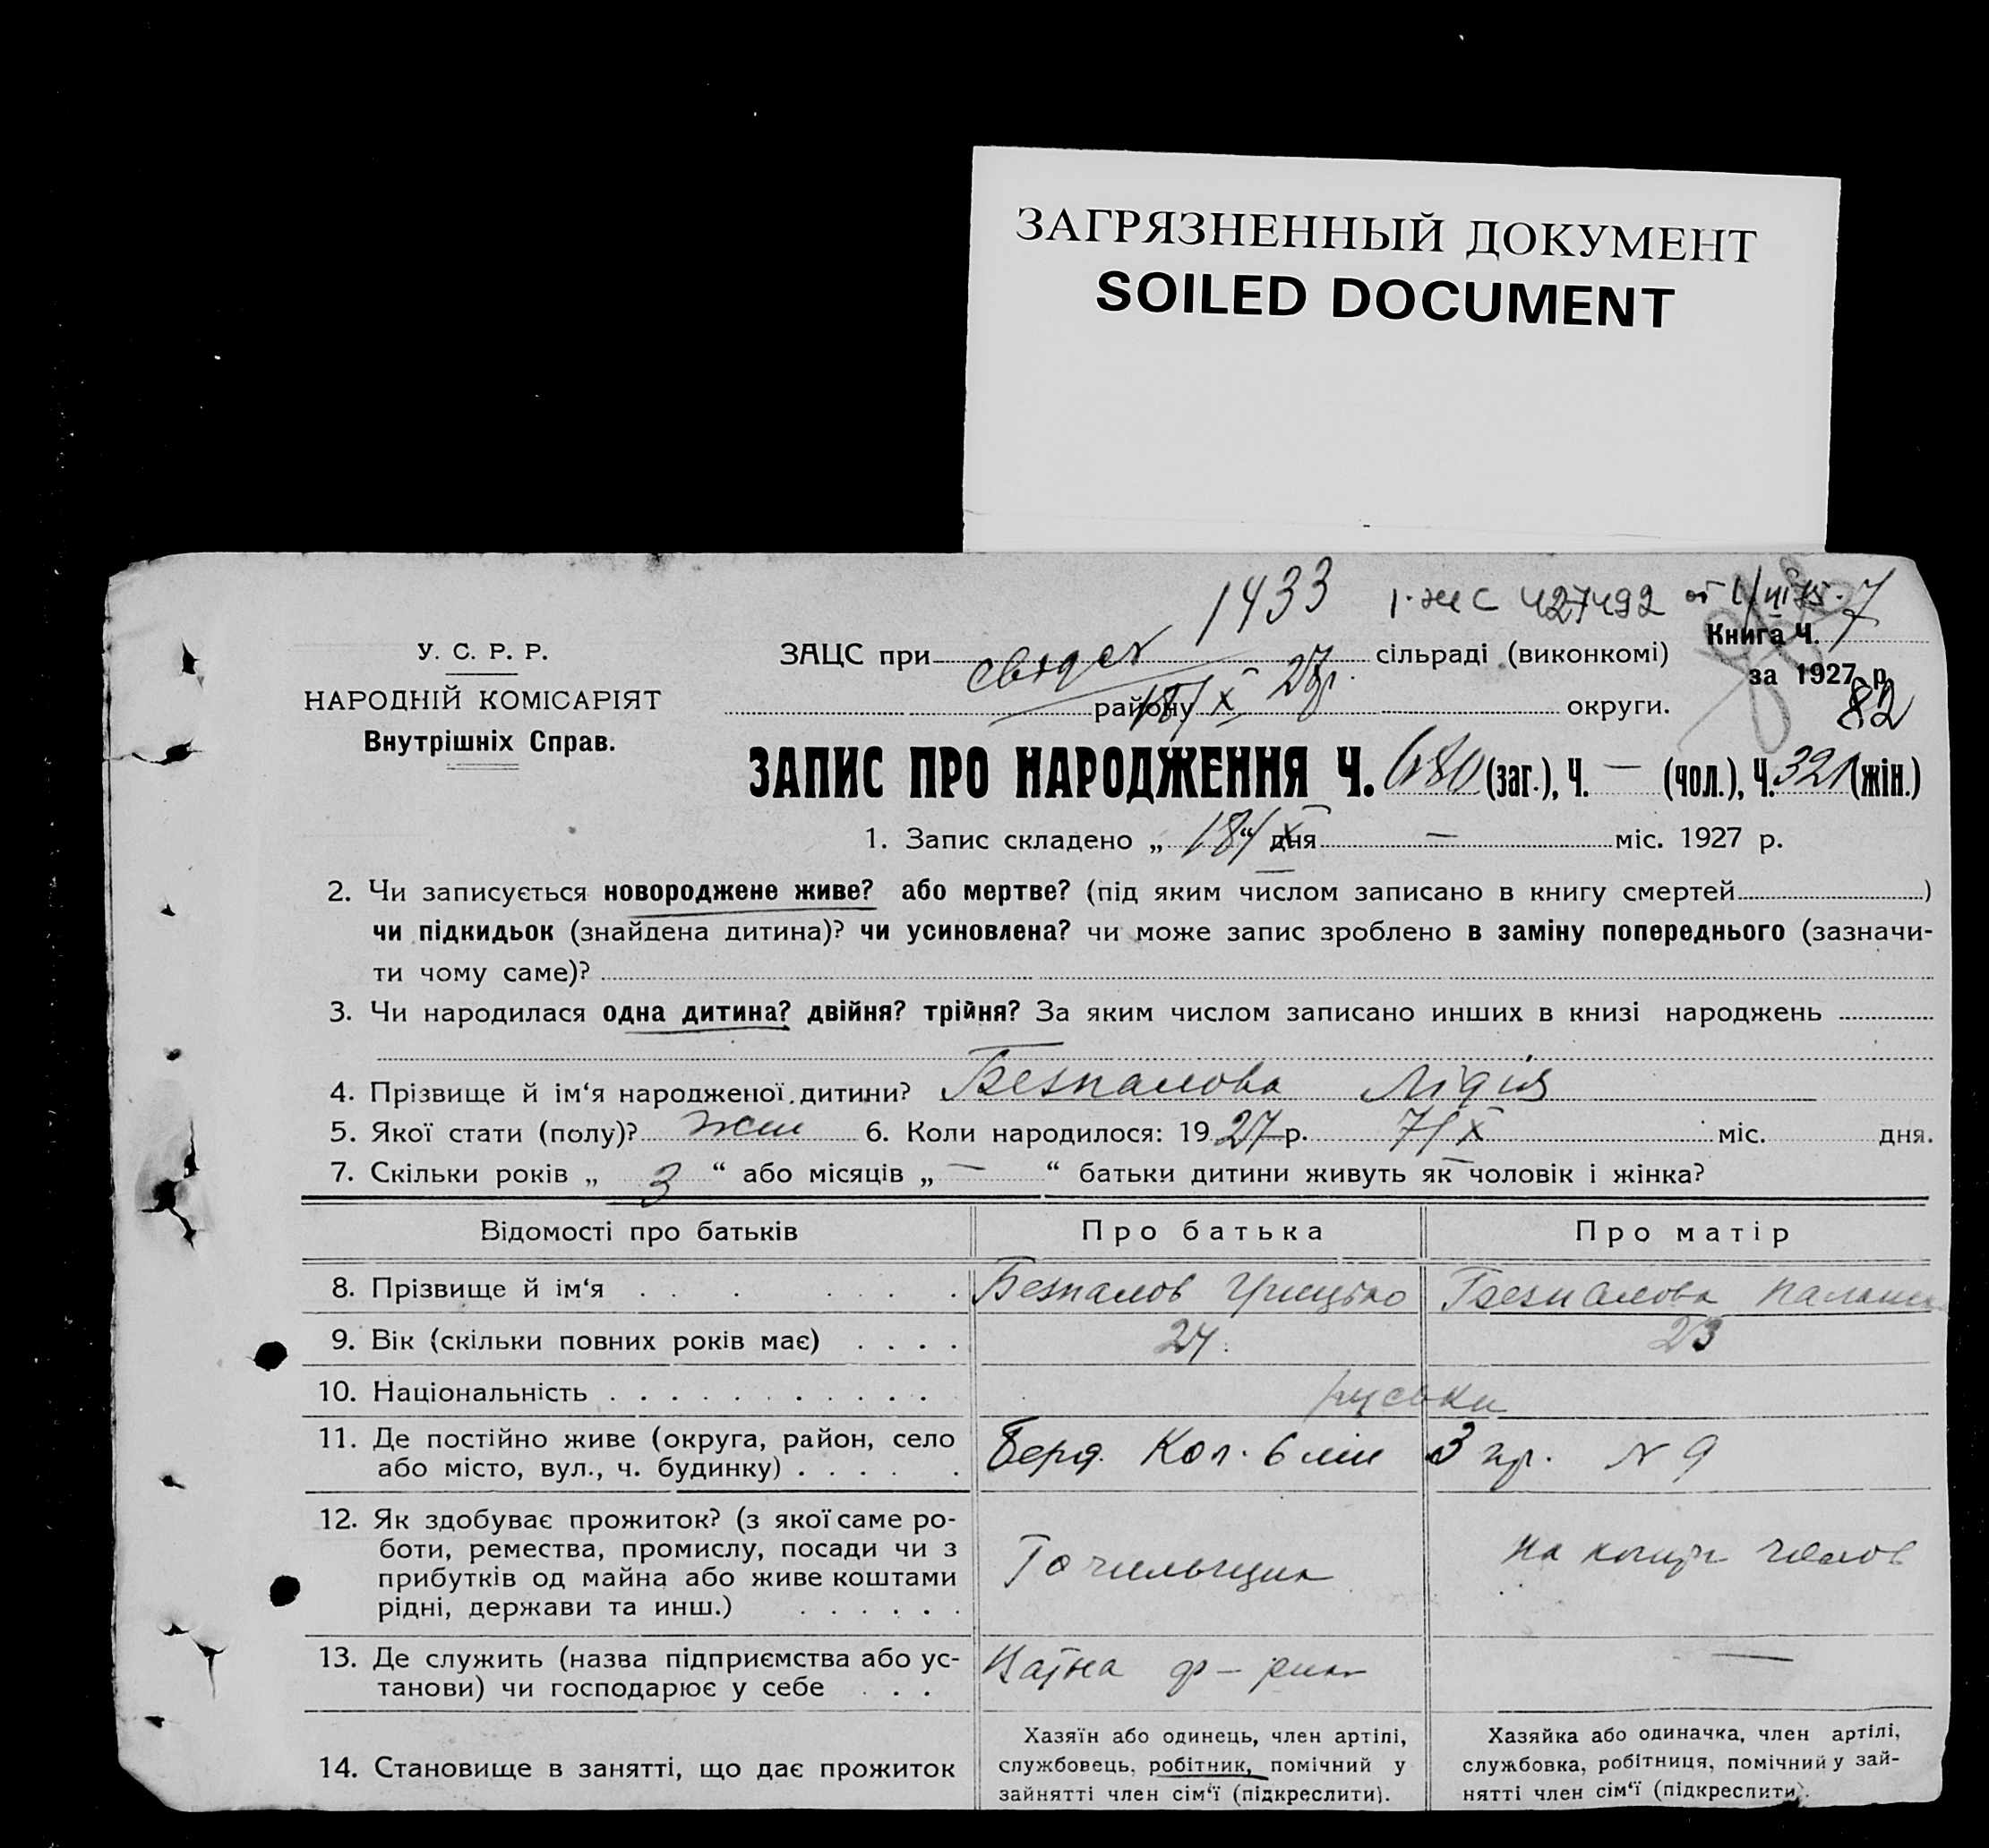 ЗАГРЯЗНЕННЫЙ ДОКУМЕНТ
SOILED DOCUMENT
1433 427492
У. С. Р. Р.
НАРОДНІЙ КОМІСАРІЯТ
Внутрішніх Справ.
ЗАЦС при сільраді (виконкомі)
Книга Ч. 7
за 1927 р.
району 18/X 27р. округи.
82
ЗАПИС ПРО НАРОДЖЕННЯ Ч. 680 (заг.), Ч. — (чол.), Ч. 321 (жін.)
1. Запис складено „ 18/X “ дня — міс. 1927 р.
2. Чи записується новороджене живе? або мертве? (під яким числом записано в книгу смертей )
чи підкидьок (знайдена дитина)? чи усиновлена? чи може запис зроблено в заміну попереднього (зазначи-
ти чому саме)?
3. Чи народилася одна дитина? двійня? трійня? За яким числом записано инших в книзі народжень
4. Прізвище й ім‘я народженої дитини? Безпалова Лідія
5. Якої стати (полу)? жін 6. Коли народилося: 1927 р. 7/X міс. дня.
7. Скільки років „ 3 “ або місяців „ — “ батьки дитини живуть як чоловік і жінка?
Відомості про батьків Про батька Про матір
8. Прізвище й ім‘я Безпалов Грицько Безпалова
9. Вік (скільки повних років має) 24. 23
10. Національність руськи
11. Де постійно живе (округа, район, село
або місто, вул., ч. будинку) Берд. Кол. 6 лін 3 пр. N 9
12. Як здобуває прожиток? (з якої саме ро-
боти, ремества, промислу, посади чи з
прибутків од майна або живе коштами
рідні, держави та инш.)
Точильщик
на кошти чолов
13. Де служить (назва підприємства або ус-
танови) чи господарює у себе
ф-рика —
14. Становище в занятті, що дає прожиток
Хазяїн або одинець, член артілі,
службовець, робітник, помічний у
зайнятті член сім‘ї (підкреслити).
Хазяйка або одиначка, член артілі,
службовка, робітниця, помічний у зай-
нятті член сім‘ї (підкреслити).